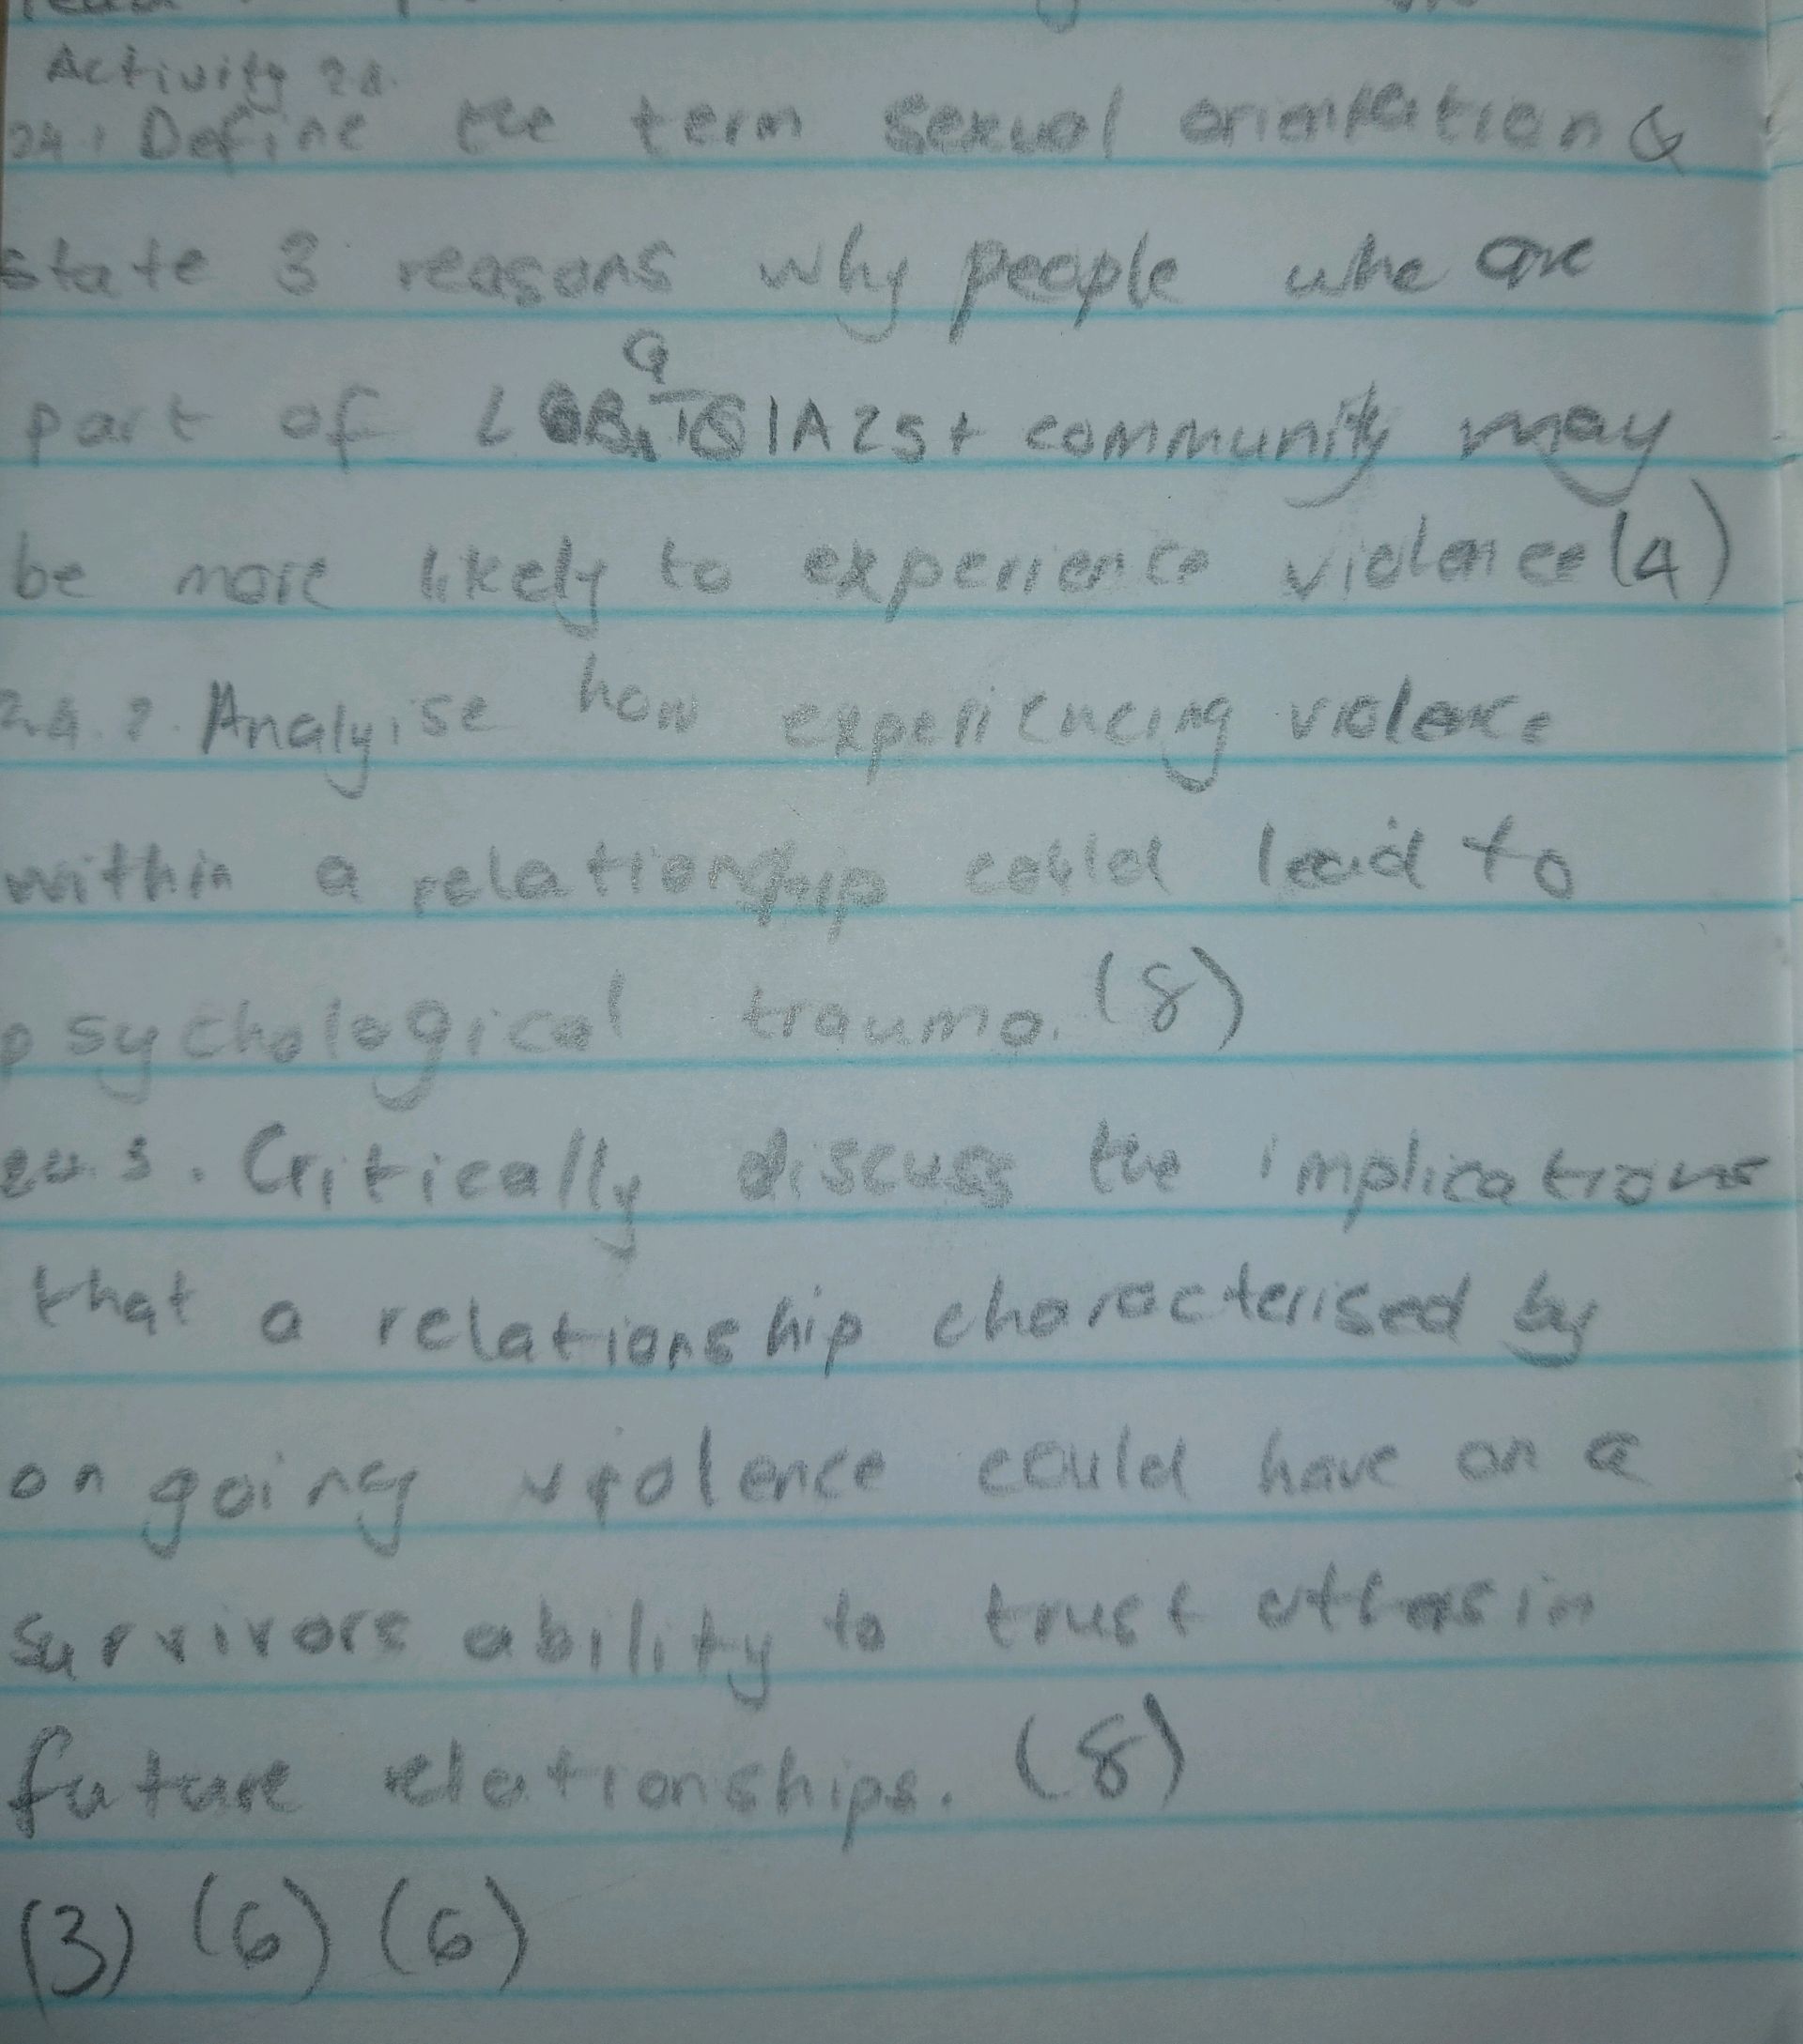 Activity 2.4.
2.4.1 Define the term sexual orientation &
state 3 reasons why people who are
part of LGBQTQIA2S+ community may
be more likely to experience violence (4)
2.4.2. Analyise how experiencing violence
within a relationship could lead to
psychological trauma. (8)
2.4.3. Critically discuss the implications
that a relationship characterised by
ongoing violence could have on a
survivors ability to trust others in
future relationships. (8)
(3) (6) (6)